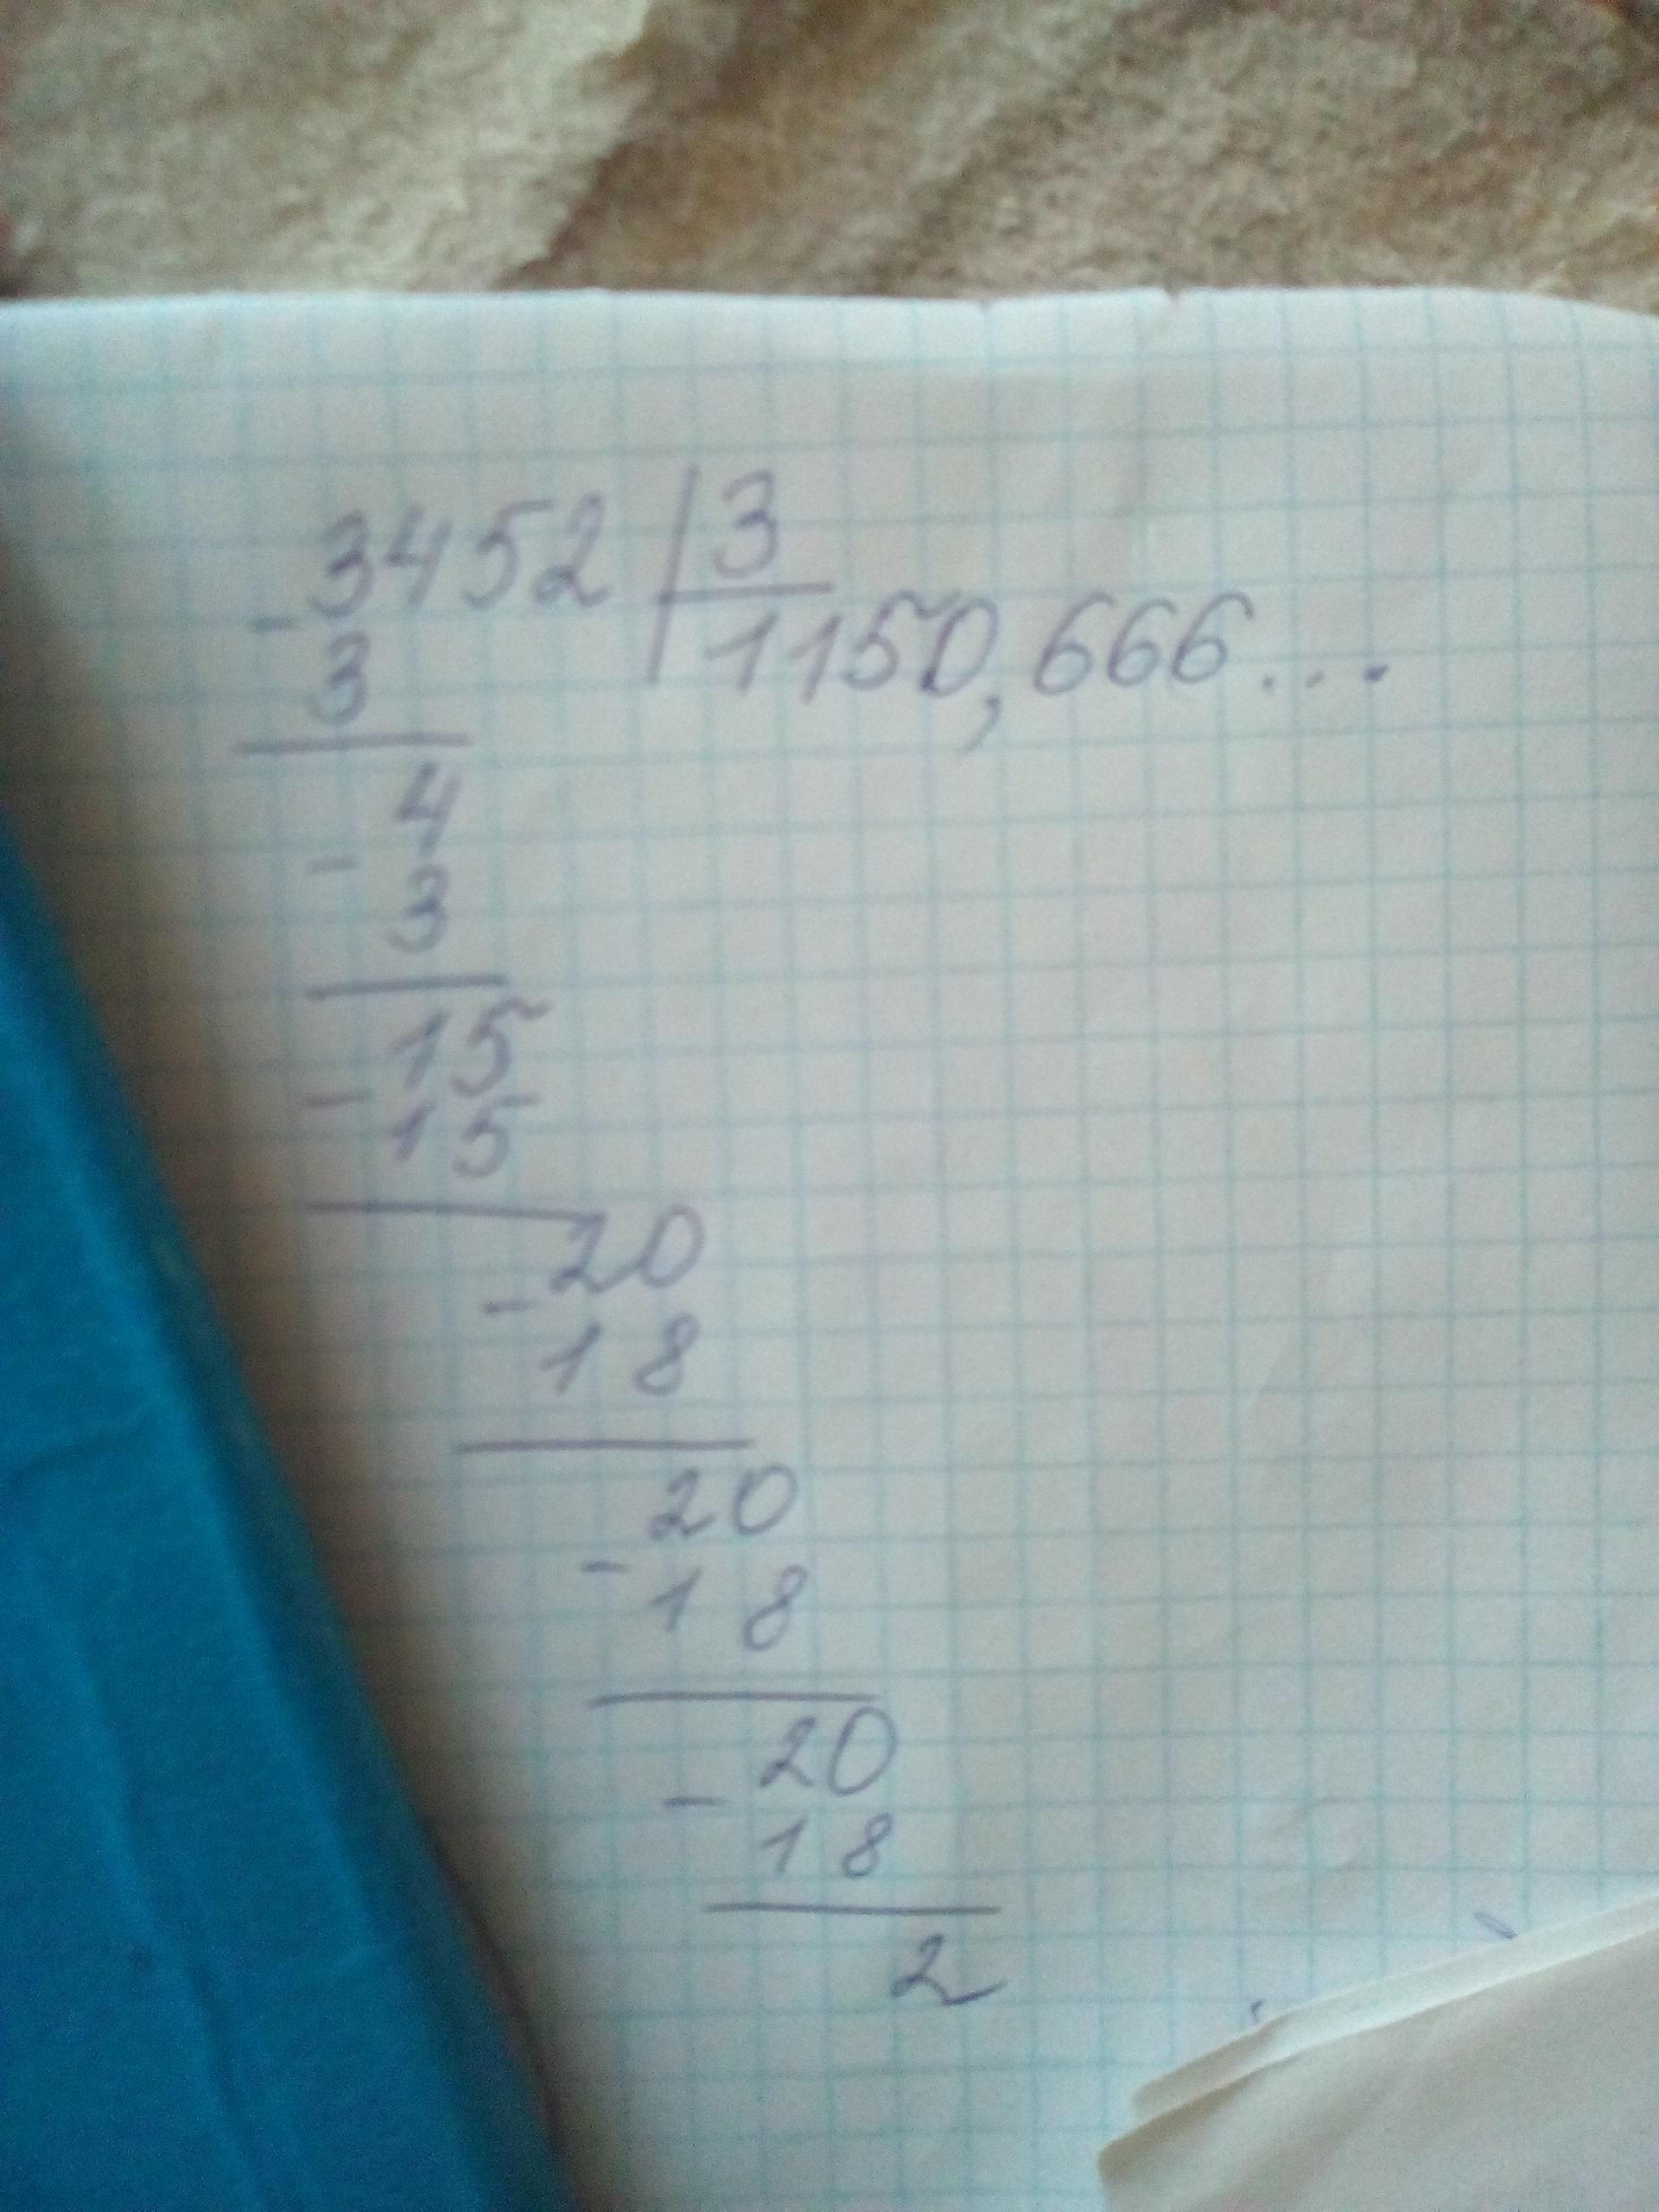 - 3452 | 3
3 1150,666...
- 4
3
- 15
15
- 20
18
- 20
18
- 20
18
2